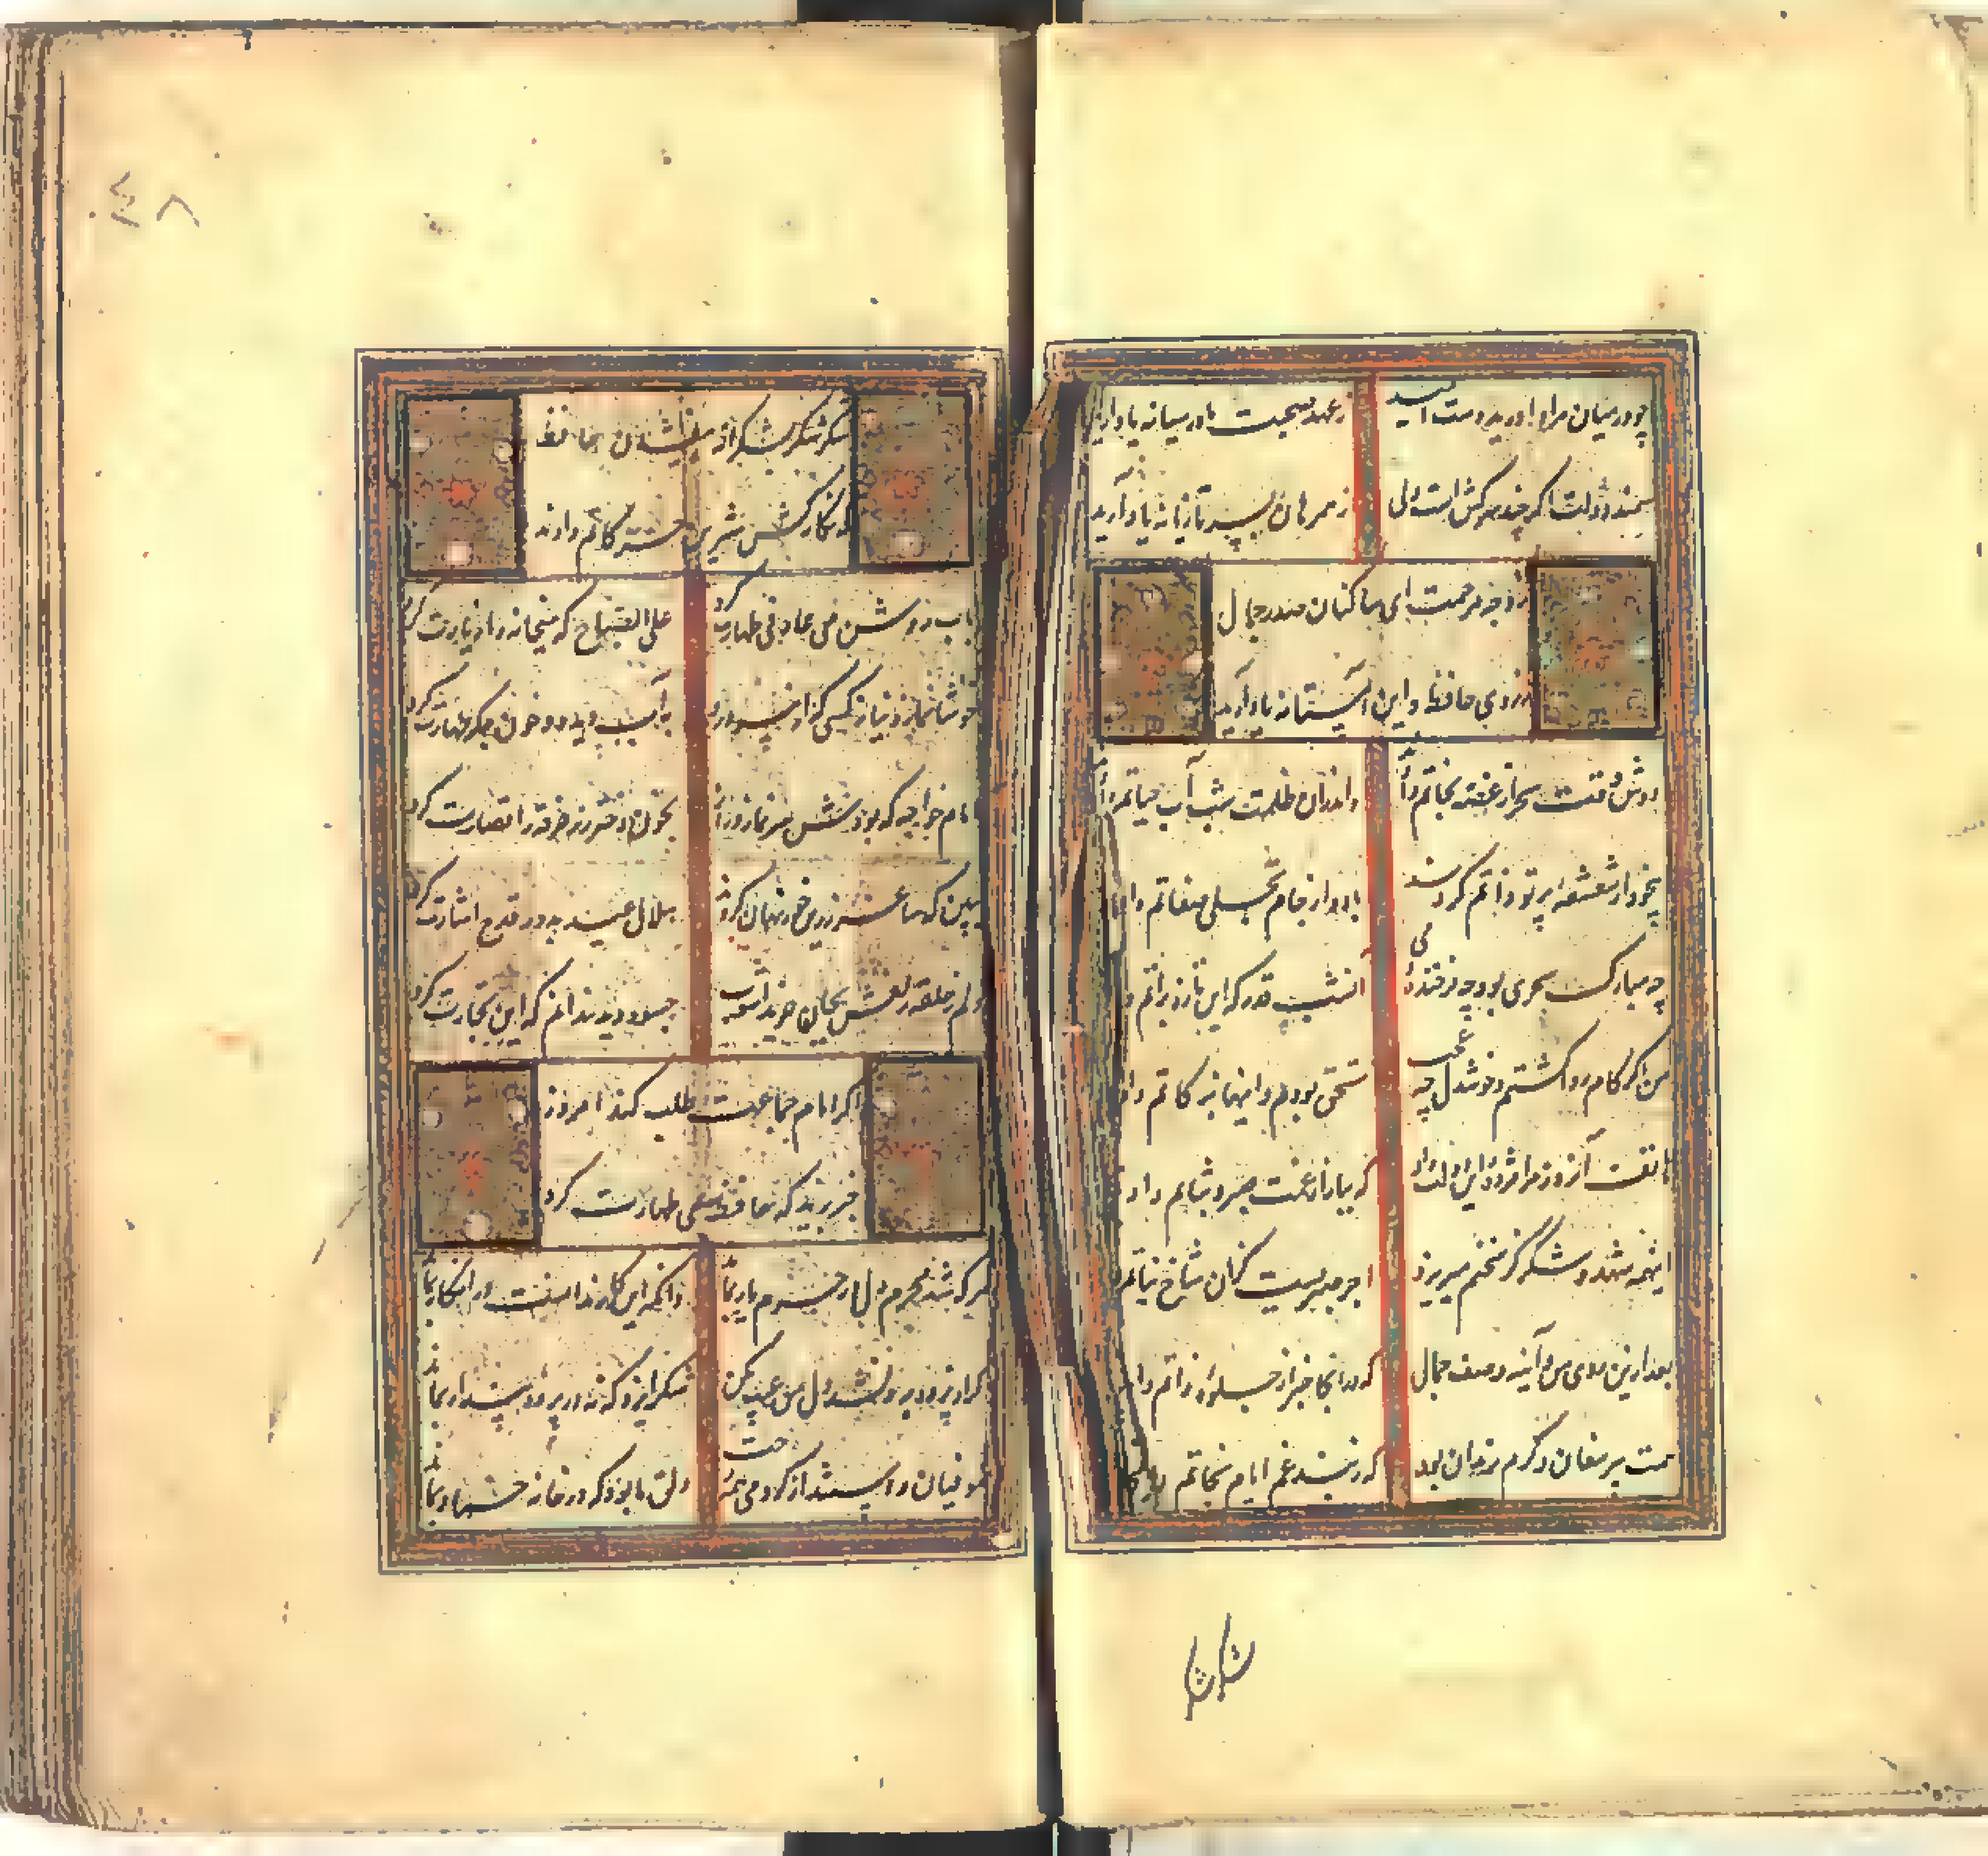 چو در میان مراد آورید دست امید ز عهد صحبت ما در میانه یاد آرید
سمند دولت اگر چند سرکش است ولی ز همرهان بسر تازیانه یاد آرید
ز وجه مرحمت ای ساکنان صدر جلال
ز روی حافظ و این آستانه یاد آرید
دوش وقت سحر از غصه نجاتم دادند واندران ظلمت شب آب حیاتم دادند
بیخود از شعشعه پرتو ذاتم کردند باده از جام تجلی صفاتم دادند
چه مبارک سحری بود و چه فرخنده شبی آنشب قدر که این تازه براتم دادند
من اگر کام روا گشتم و خوشدل چه عجب مستحق بودم و اینها بزکاتم دادند
هاتف آنروز مرا مژده این دولت داد که ببازار غمت صبر و ثباتم دادند
اینهمه شهد و شکر کز سخنم میریزد اجر صبریست کزان شاخ نباتم دادند
بعد ازین روی من و آینه وصف جمال که در آنجا خبر از جلوه ذاتم دادند
همت پیر مغان و کرم رندان بود که ز بند غم ایام نجاتم دادند
شکر شکر
۴۸
شکر شکر بشکرانه بیفشان حافظ
که نگار خوش شیرین حرکاتم دادند
بآب روشن می عارفی طهارت کرد علی الصباح که میخانه را زیارت کرد
خوشا نماز و نیاز کسی که از سر درد به آب دیده و خون جگر طهارت کرد
امام خواجه که بودش سر نماز دراز بخون دختر رز خرقه را قصارت کرد
همین که ساغر زرین خور نهان کردند هلال عید بدور قدح اشارت کرد
دلم ز حلقه زلفش بجان خرید آشوب چه سود دید ندانم که این تجارت کرد
اگر امام جماعت طلب کند امروز
خبر دهید که حافظ بمی طهارت کرد
هر که شد محرم دل در حرم یار بماند وانکه این کار ندانست در انکار بماند
اگر از پرده برون شد دل من عیب مکن شکر ایزد که نه در پرده پندار بماند
صوفیان واستدند از گرو می همه رخت دلق ما بود که در خانه خمار بماند